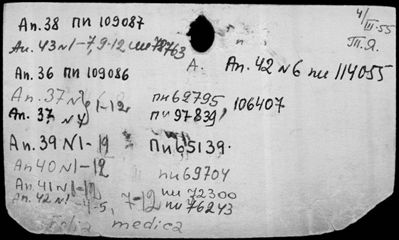 Ап. 38 пи 109087
4/III-55
Ап. 43 №1-7, 9-12 пи 78763
П.Я.
А. Ап. 42 №6 пи 114055
Ап. 36 пи 109086
Ап. 37 № 1-12 пи 69795
Ап. 37 № пи 97839, 106407
Ап. 39 №1-12 пи 65139.
Ап 40 №1-12 пи 69704
Ап 41 №1-12 пи 72300
Ап. 42 №1-4-5, 7-12 пи 76243
Folia medica